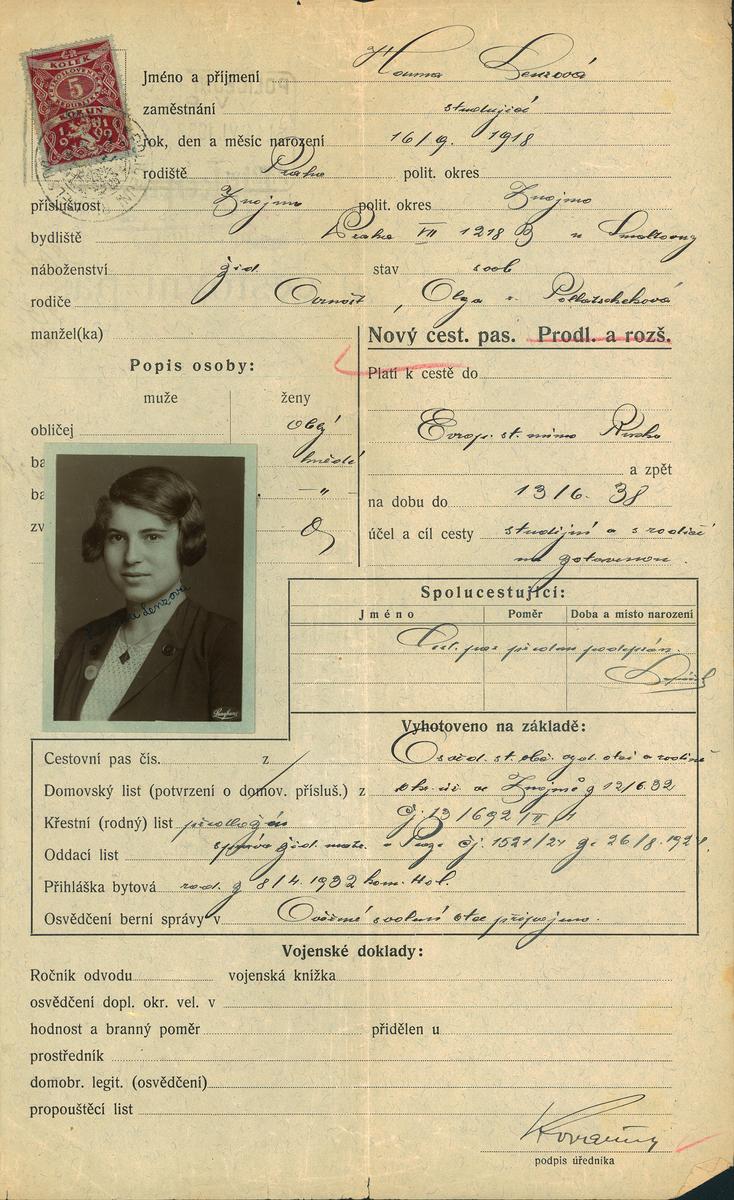 ČR
KOLEK
5
KORUN
1919
Jméno a příjmení Hanna Lenzová
zaměstnání studující
rok, den a měsíc narození 16/9. 1918
rodiště Praha polit. okres
příslušnost Znojmo polit. okres Znojmo
bydliště Praha VII 1218 B u Smaltovny
náboženství žid. stav svob
rodiče Arnošt, Olga r. Pollatscheková
manžel(ka)
Nový cest. pas. Prodl. a rozš.
Popis osoby:
Platí k cestě do
muže ženy
obličej obl.
Evrop. st. mimo Rusko
ba hnědé
a zpět
ba „
na dobu do 13/6. 38
zv 0
účel a cíl cesty studijní a s rodiči
na zotavenou.
Spolucestující:
Jméno Poměr Doba a místo narození
Cest. pas předán podepsán.
Vyhotoveno na základě:
Cestovní pas čís. z Osvěd. st. obč. vyd. otci a rodině
Domovský list (potvrzení o domov. přísluš.) z okr. úř. ve Znojmě z 12/6.32
Křestní (rodný) list předložen čj 13/692
Oddací list správa žid. matr. v Praze čj. 1521/24 z 26/8.1924.
Přihláška bytová rod. z 8/4.1932 kom. Hol.
Osvědčení berní správy v Ověřené svolení otce připojeno.
Vojenské doklady:
Ročník odvodu vojenská knížka
osvědčení dopl. okr. vel. v
hodnost a branný poměr přidělen u
prostředník
domobr. legit. (osvědčení)
propouštěcí list
podpis úředníka